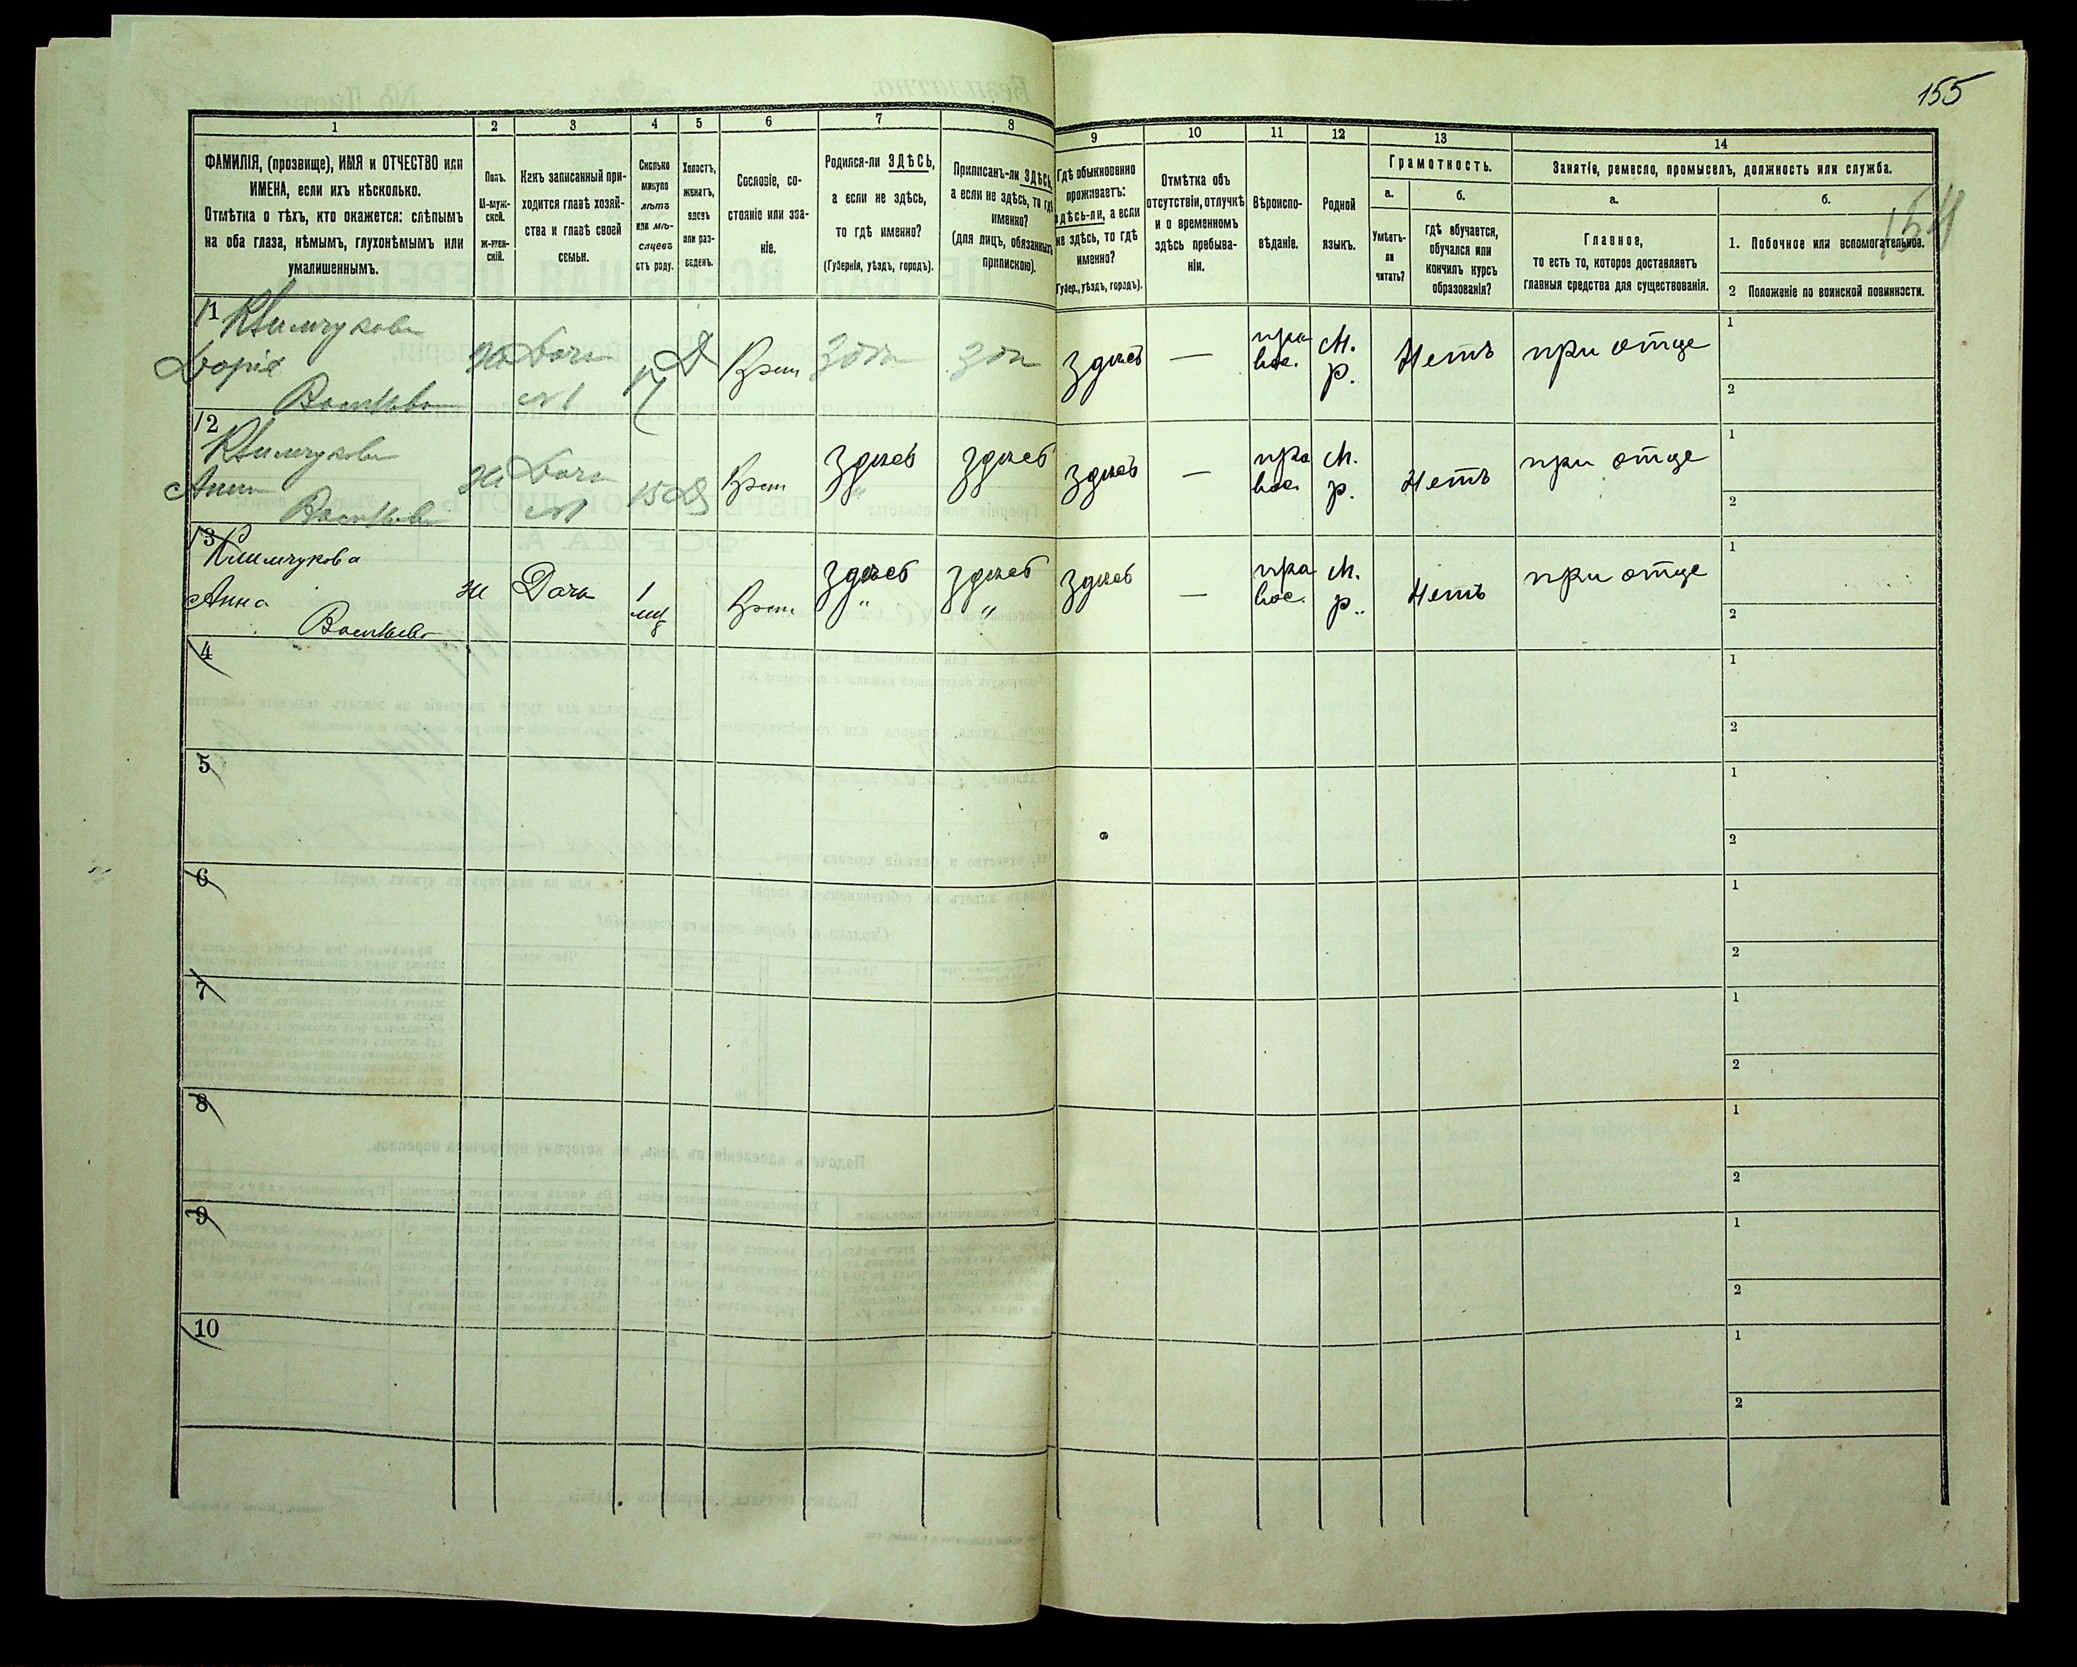 155
154
1
2
3
4
5
6
7
8
9
10
11
12
13
14
ФАМИЛІЯ, (прозвище), ИМЯ и ОТЧЕСТВО или
ИМЕНА, если ихъ нѣсколько.
Отмѣтка о тѣхъ, кто окажется: слѣпымъ
на оба глаза, нѣмымъ, глухонѣмымъ или
умалишеннымъ.
Полъ.
М-муж-
ской.
ж-жен-
скій.
Какъ записанный при-
ходится главѣ хозяй-
ства и главѣ своей
семьи.
Сколько
минуло
лѣтъ
или мѣ-
сяцевъ
отъ роду.
Холостъ,
женатъ,
вдовъ
или раз-
веденъ.
Сословіе, со-
стояніе или зва-
ніе.
Родился-ли ЗДѢСЬ,
а если не здѣсь,
то гдѣ именно?
(Губернія, уѣздъ, городъ).
Приписанъ-ли ЗДѢСЬ,
а если не здѣсь, то гдѣ
именно?
(для лицъ, обязанныхъ
припискою).
Гдѣ обыкновенно
проживаетъ:
здѣсь-ли, а если
не здѣсь, то гдѣ
именно?
(Губер., уѣздъ, городъ).
Отмѣтка объ
отсутствіи, отлучкѣ
и о временномъ
здѣсь пребыва-
ніи.
Вѣроиспо-
вѣданіе.
Родной
языкъ.
Грамотность.
а.
б.
Умѣетъ-
ли
читать?
гдѣ обучается,
обучался или
кончилъ курсъ
образованія?
Занятіе, ремесло, промыселъ, должность или служба.
а.
б.
Главное,
то есть то, которое доставляетъ
главныя средства для существованія.
1. Побочное или вспомогательное.
2 Положеніе по воинской повинности.
11 Климчукова
Дарія
Васильева
Ж Дочь
№1
17 Д Крест здѣсь здѣсь здѣсь — пра
вос. М.
р. Нетъ при отце
1
2
12
Климчукова
Анна
Васильева
Ж Дочь
№1
15 Д Крест здѣсь здѣсь здѣсь — пра
вос. М.
р. Нетъ при отце
1
2
13
Климчукова
Анна
Васильева
Ж Дочь 1 Крест здѣсь здѣсь здѣсь — пра
вос. М.
р. Нетъ при отце
1
2
4
1
2
5
1
2
6
1
2
7
1
2
8
1
2
9
1
2
10
1
2